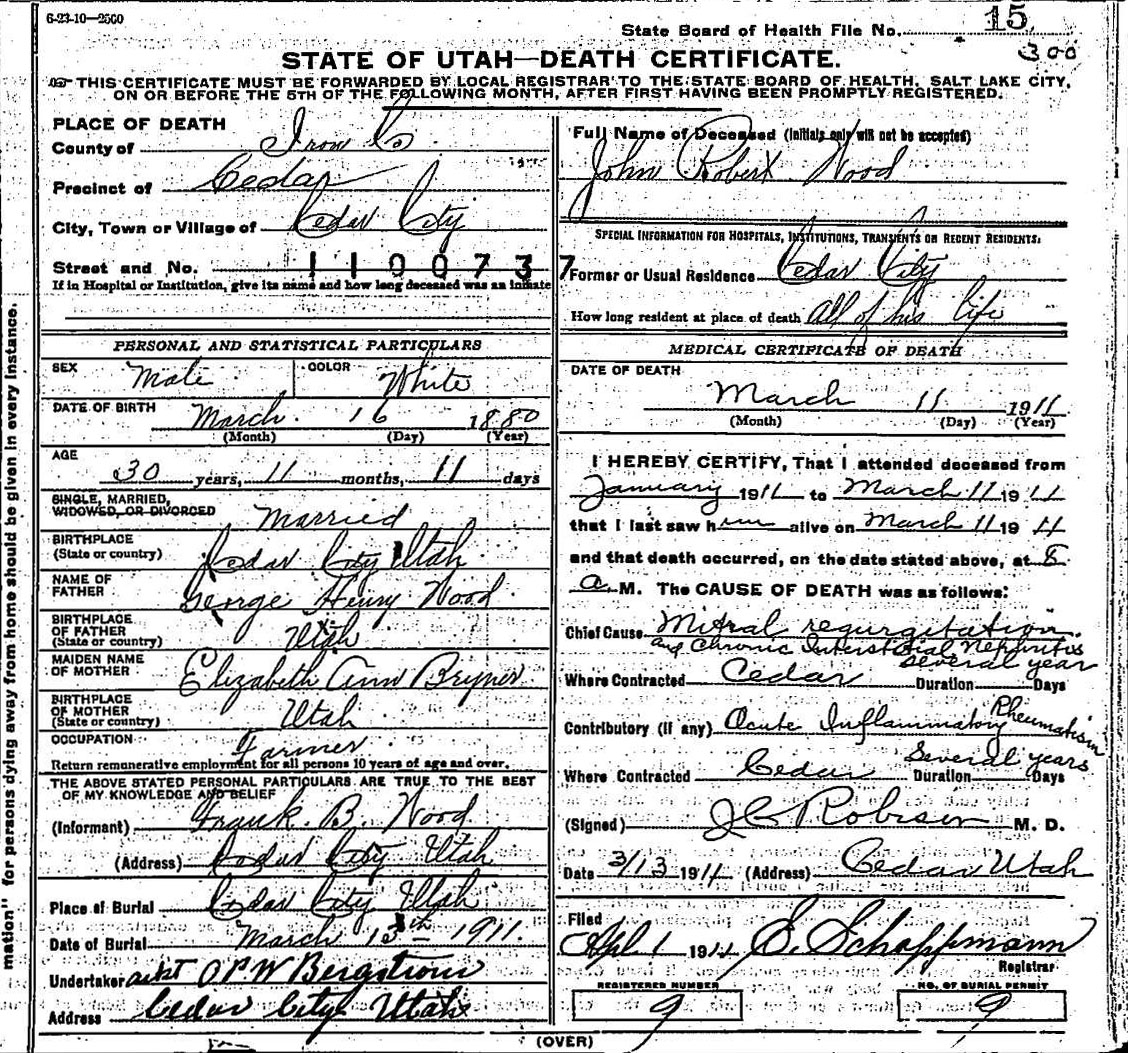 6-23-10—2500
State Board of Health File No. 15
300
STATE OF UTAH—DEATH CERTIFICATE.
THIS CERTIFICATE MUST BE FORWARDED BY LOCAL REGISTRAR TO THE STATE BOARD OF HEALTH, SALT LAKE CITY,
ON OR BEFORE THE 5TH OF THE FOLLOWING MONTH, AFTER FIRST HAVING BEEN PROMPTLY REGISTERED.
PLACE OF DEATH
County of Iron Co.
Precinct of Cedar
City, Town or Village of Cedar City
Street and No. 1100737
If in Hospital or Institution, give its name and how long deceased was an inmate
PERSONAL AND STATISTICAL PARTICULARS
SEX Male COLOR White
DATE OF BIRTH March 16 1880
(Month) (Day) (Year)
AGE
30 years, 11 months, 11 days
SINGLE, MARRIED,
WIDOWED, OR DIVORCED Married
BIRTHPLACE
(State or country) Cedar City Utah
NAME OF
FATHER George Henry Wood
BIRTHPLACE
OF FATHER
(State or country) Utah
MAIDEN NAME
OF MOTHER Elizabeth Ann Bryner
BIRTHPLACE
OF MOTHER
(State or country) Utah
OCCUPATION Farmer
Return remunerative employment for all persons 10 years of age and over.
THE ABOVE STATED PERSONAL PARTICULARS ARE TRUE TO THE BEST
OF MY KNOWLEDGE AND BELIEF
(Informant) Frank. B. Wood
(Address) Cedar City Utah
Place of Burial Cedar City Utah
Date of Burial March 13th 1911.
Undertaker asst O P W Bergstrom
Address Cedar City Utah
Full Name of Deceased (Initials only will not be accepted)
John Robert Wood
SPECIAL INFORMATION FOR HOSPITALS, INSTITUTIONS, TRANSIENTS OR RECENT RESIDENTS:
Former or Usual Residence Cedar City
How long resident at place of death All of his life
MEDICAL CERTIFICATE OF DEATH
DATE OF DEATH
March 11 1911
(Month) (Day) (Year)
I HEREBY CERTIFY, That I attended deceased from
January 1911 to March 11 1911
that I last saw him alive on March 11 1911
and that death occurred, on the date stated above, at 8
a M. The CAUSE OF DEATH was as follows:
Chief Cause Mitral regurgitation.
and Chronic Interstitial Nephritis
several year
Where Contracted Cedar Duration Days
Contributory (if any) Acute Inflammatory Rheumatism
Several years
Where Contracted Cedar Duration Days
(Signed) J C Robison M. D.
Date 3/13 1911 (Address) Cedar Utah
Filed
Apl. 1 1911 E. Schoppmann
Registrar
REGISTERED NUMBER
9
NO. OF BURIAL PERMIT
9
(OVER)
mation" for persons dying away from home should be given in every instance.